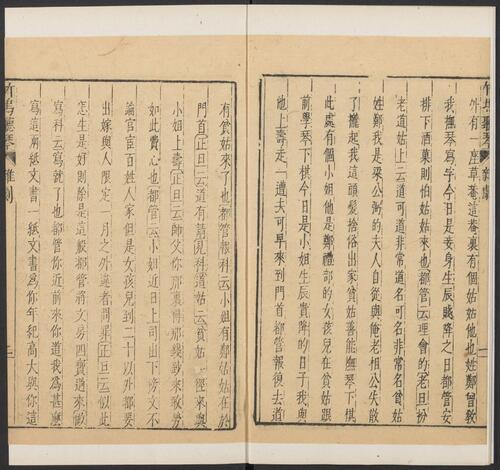 外有一座草菴這菴裏有個姑姑他也姓鄭曾教
我撫琴寫字今日是妾身生辰賤降之日都管安
排下酒菓則怕姑姑來也都管云理會的老旦扮
老道姑上云道可道非常道名可名非常名貧姑
姓鄭我是梁公弼的夫人自從與俺老相公失散
了攞起我這頭髮捨俗出家貧姑善能撫琴下棋
此處有個小姐他是鄭禮部的女孩兒在貧姑跟
前學琴下棋今日是小姐生辰貴降的日子我與
他上壽走一遭去可早來到門首都管報復去道
有貧姑來了也都管報科云小姐有鄭姑姑在於
門首正旦云道有請見科道姑云貧姑一徑來與
小姐上壽正旦云師父你那裏得那錢鈔來敎勞
如此費心也都管云小姐近日上司出下榜文不
論官宦百姓人家但是女孩兒到二十以外都要
出嫁與人限定一月之外違者問罪正旦云似此
怎生是好則除是這般都管將文房四寶過來做
寫科云寫就了也都管你近前來你道我爲甚麼
寫這兩紙文書一紙文書爲你年紀高大與你這
竹塢聽琴 雜劇 二